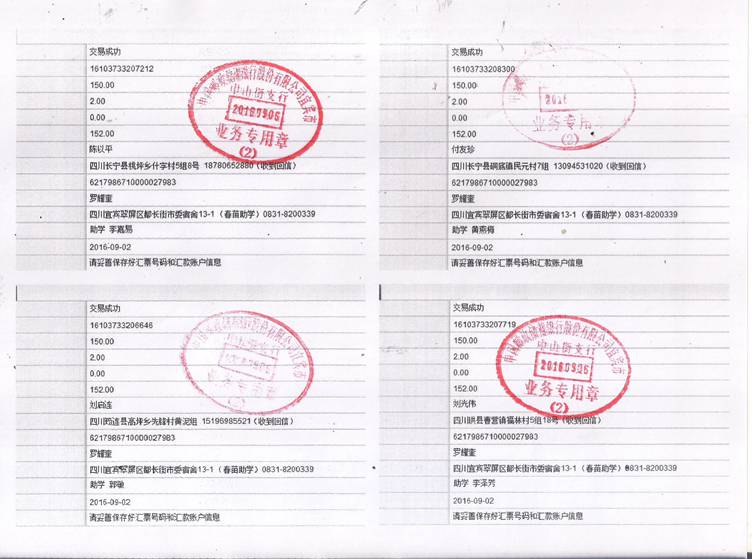 交易成功
16103733207212
150.00
2.00
0.00
152.00
陈以平
四川长宁县桃坪乡什字村5组8号 18780652880 (收到回信)
6217986710000027983
罗耀奎
四川宜宾翠屏区都长街市委宿舍13-1 (春苗助学) 0831-8200339
助学 李嘉易
2016-09-02
请妥善保存好汇票号码和汇款账户信息
中山街支行
20160906
业务专用章
(2)
交易成功
16103733208300
150.00
2.00
0.00
152.00
付友珍
四川长宁县硐底镇民元村7组 13094531020 (收到回信)
6217986710000027983
罗耀奎
四川宜宾翠屏区都长街市委宿舍13-1 (春苗助学) 0831-8200339
助学 黄燕梅
2016-09-02
请妥善保存好汇票号码和汇款账户信息
业务专用章
(2)
交易成功
16103733206646
150.00
2.00
0.00
152.00
刘启连
四川筠连县高坪乡先锋村黄泥组 15196985521 (收到回信)
6217986710000027983
罗耀奎
四川宜宾翠屏区都长街市委宿舍13-1 (春苗助学) 0831-8200339
助学 郭敏
2016-09-02
请妥善保存好汇票号码和汇款账户信息
交易成功
16103733207719
150.00
2.00
0.00
152.00
刘光伟
四川珙县曹营镇福林村5组18号 (收到回信)
6217986710000027983
罗耀奎
四川宜宾翠屏区都长街市委宿舍13-1 (春苗助学) 0831-8200339
助学 李泽芳
2016-09-02
请妥善保存好汇票号码和汇款账户信息
中山街支行
20160906
业务专用章
(2)